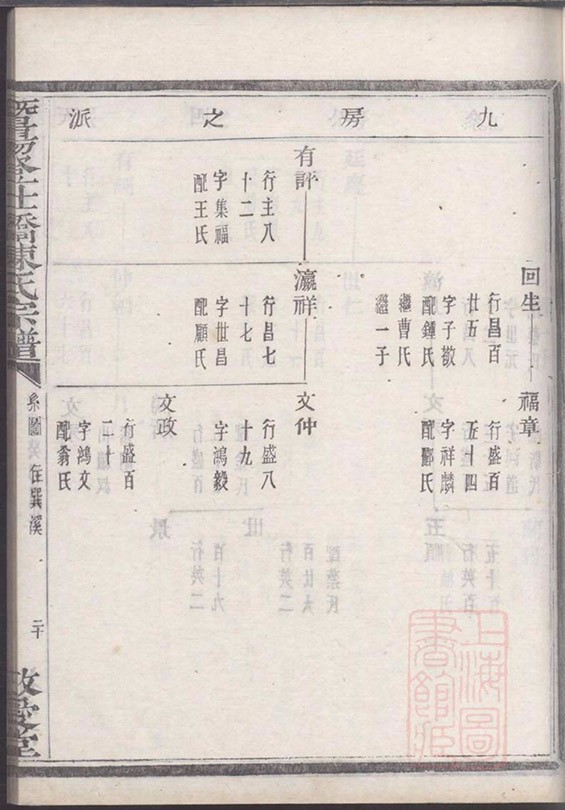 九房之派
回生
行昌百
廿五
字子敬
配鍾氏
繼曹氏
繼一子
福章
行盛百
五十四
字祥麟
配酈氏
有許
行主八
十二
字集福
配王氏
瀛祥
行昌七
十七
字世昌
配顧氏
文仲
行盛八
十九
字鴻毅
文政
行盛百
二十
字鴻文
配翁氏
暨陽登仕橋陳氏宗譜
系圖 在巽溪
二十
敬愛堂
上海圖書館藏